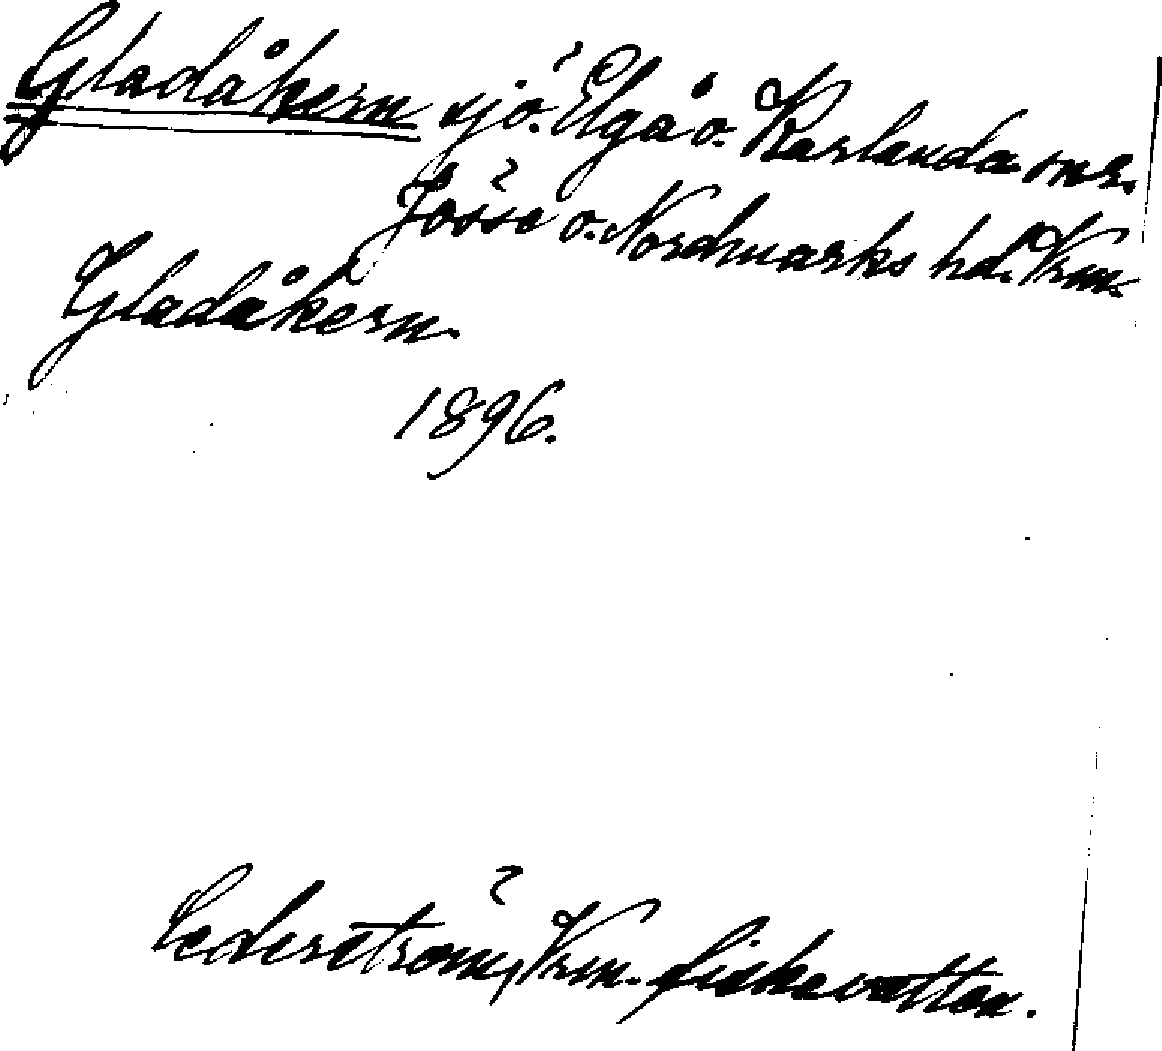 Gladåkern sjö. Elgå o. Karlanda snr.
Jösse o. Nordmarks hd. Vrm.
Gladåkern.
1896.
Cederström, Vrm. fiskevatten.